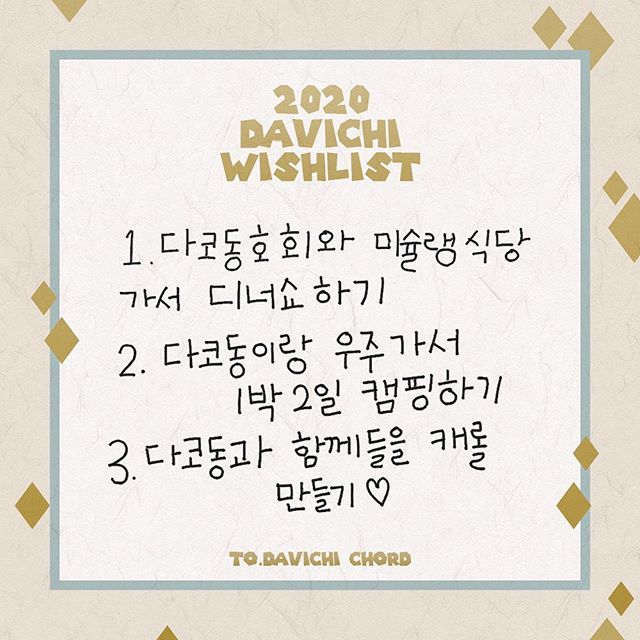 2020
DAVICHI
WISHLIST
1. 다코동호회와 미슐랭식당
가서 디너쇼하기
2. 다코동이랑 우주가서
1박2일 캠핑하기
3. 다코동과 함께들을 캐롤
만들기♡
TO.DAVICHI CHORD